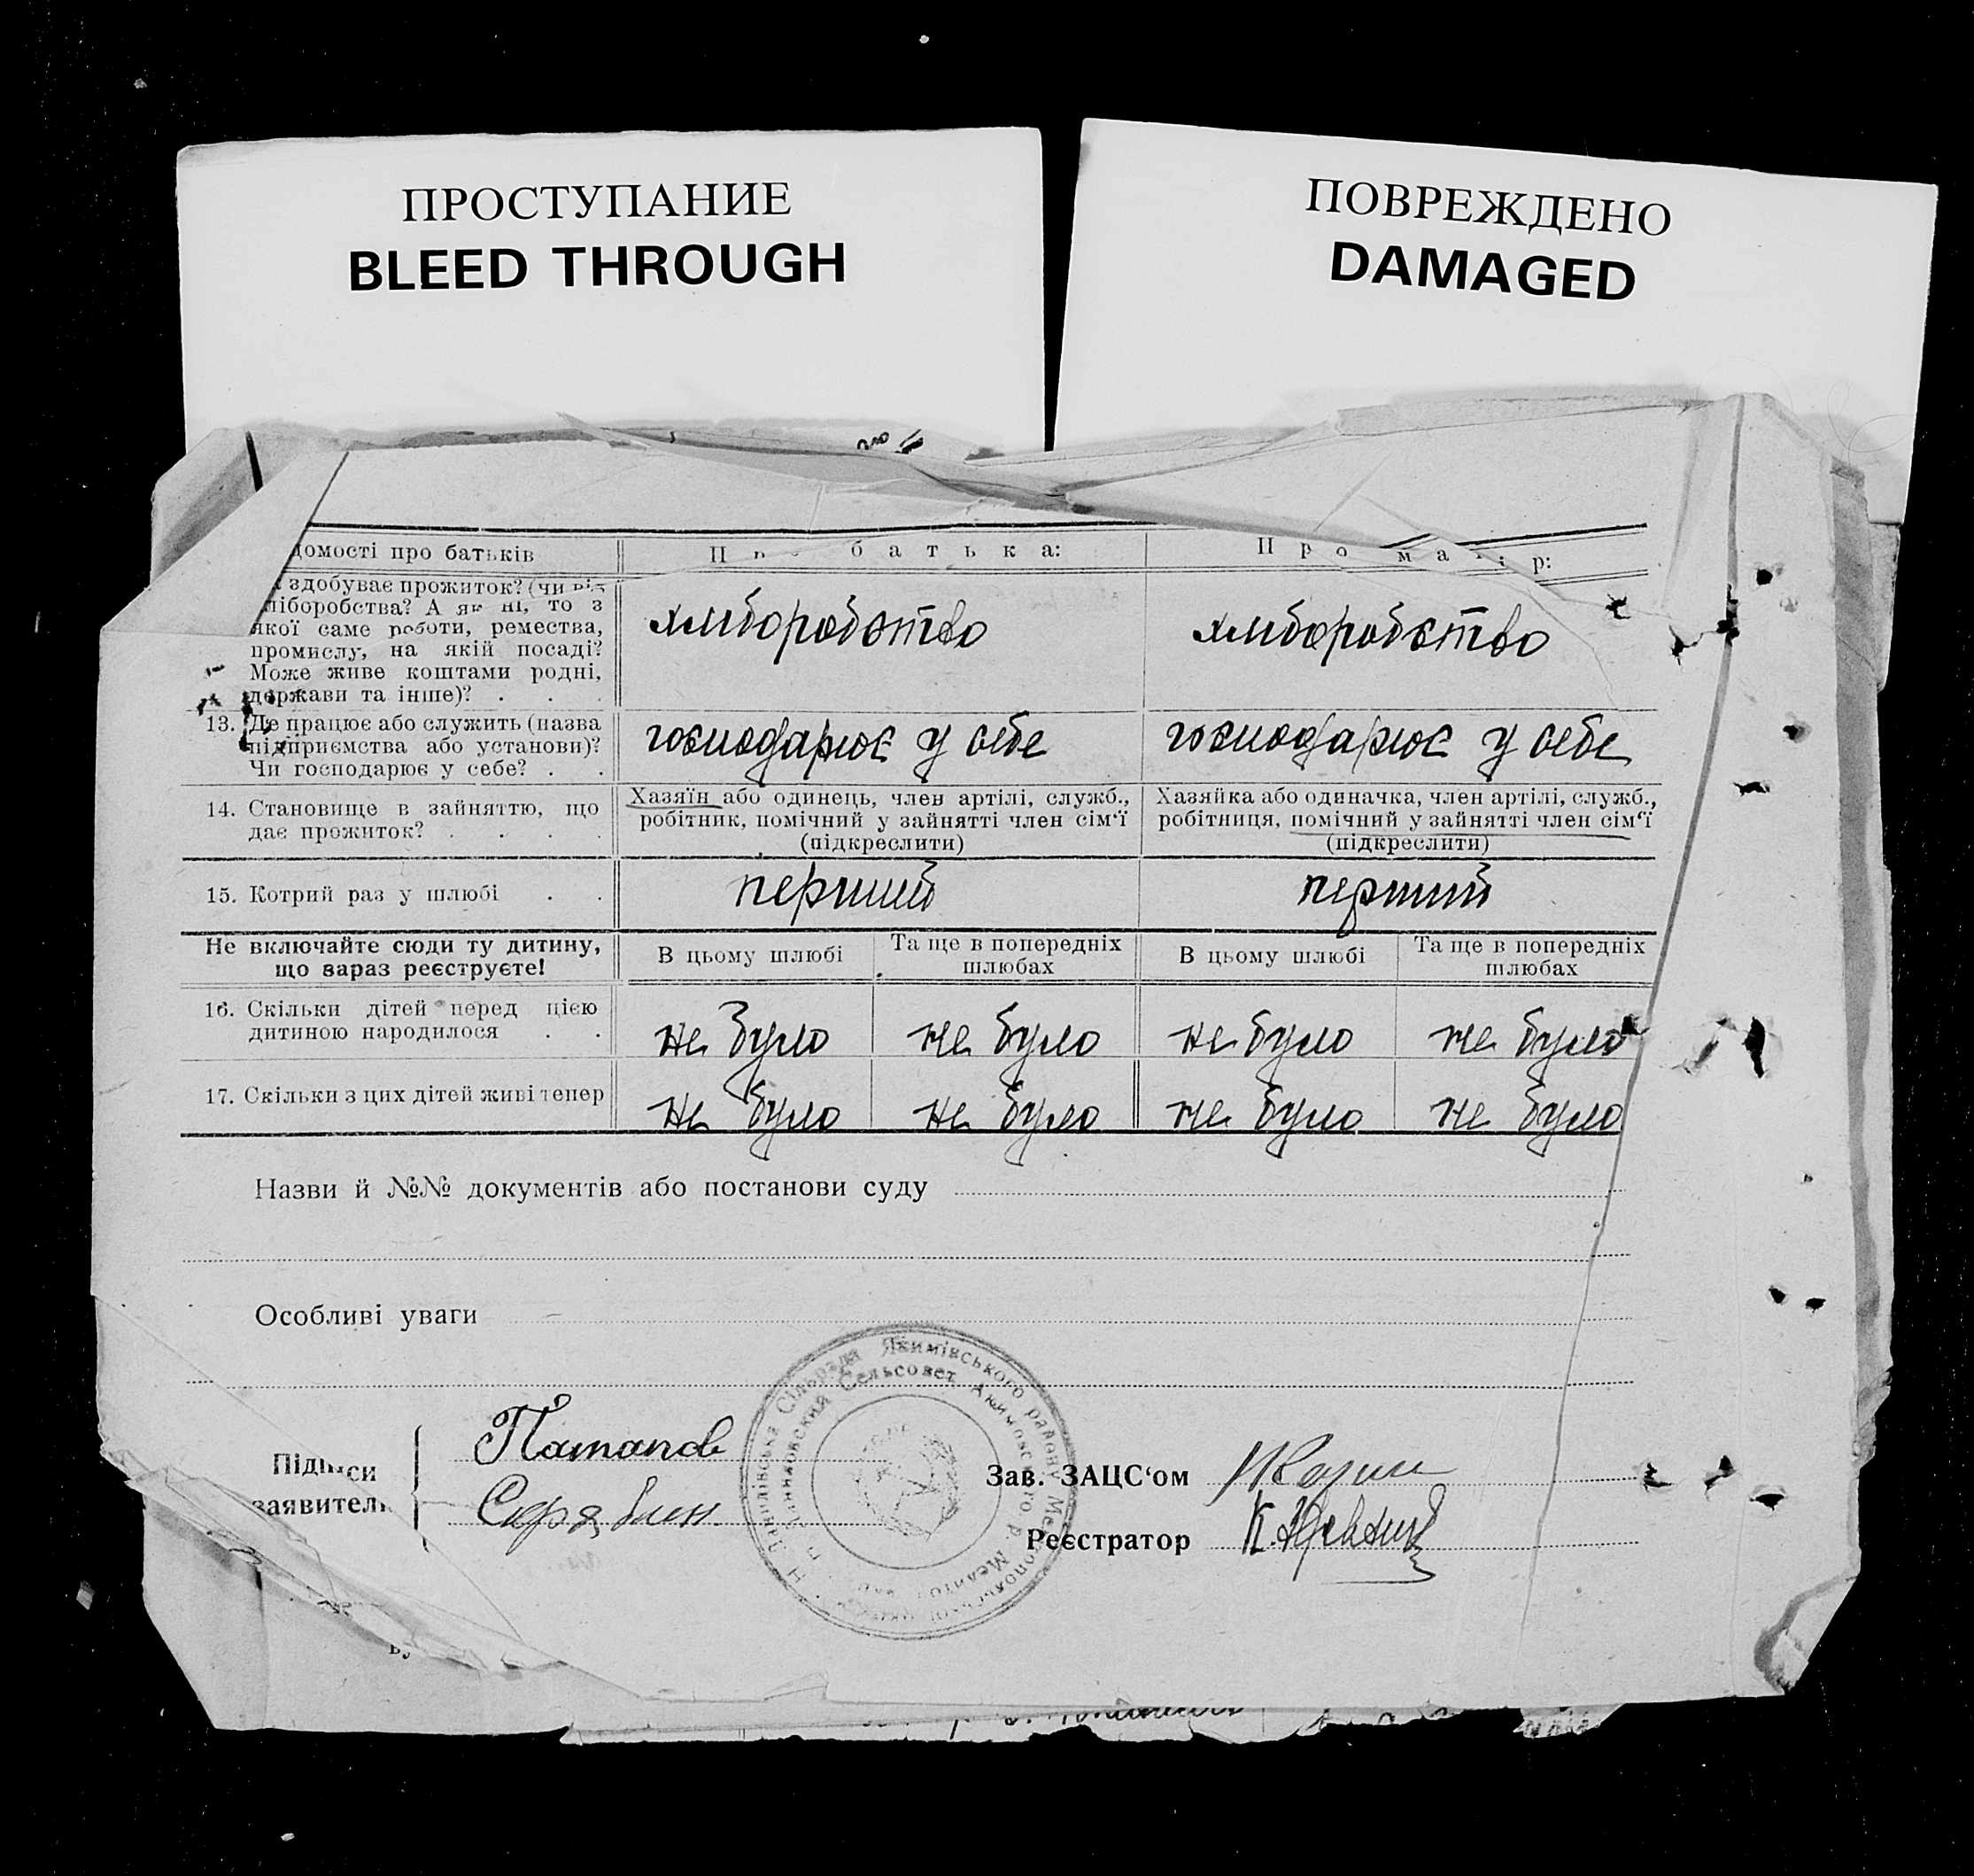 ПРОСТУПАНИЕ
BLEED THROUGH
ПОВРЕЖДЕНО
DAMAGED
домості про батьків
батька:
здобуває прожиток? (чи від
ліборобства? А як ні, то з
якої саме роботи, ремества,
промислу, на якій посаді?
Може живе коштами родні,
держави та інше)? . . .
хліборобство
хліборобство
13. Де працює або служить (назва
підприємства або установи)?
Чи господарює у себе? . .
господарює у себе
господарює у себе
14. Становище в зайняттю, що
дає прожиток? . . . .
Хазяїн або одинець, член артілі, служб.,
робітник, помічний у зайнятті член сім‘ї
(підкреслити)
Хазяйка або одиначка, член артілі, служб.,
робітниця, помічний у зайнятті член сім‘ї
(підкреслити)
15. Котрий раз у шлюбі . .
перший
перший
Не включайте сюди ту дитину,
що зараз реєструєте!
В цьому шлюбі
Та ще в попередніх
шлюбах
В цьому шлюбі
Та ще в попередніх
шлюбах
16. Скільки дітей перед цією
дитиною народилося . .
не було
не було
не було
не було
17. Скільки з цих дітей живі тепер
не було
не було
не було
не було
Назви й №№ документів або постанови суду
Особливі уваги
Підписи
заявител
Потапов
Зав. ЗАЦС‘ом
Реєстратор
Сільрада Якимівського району
Сельсовет Акимовского р.